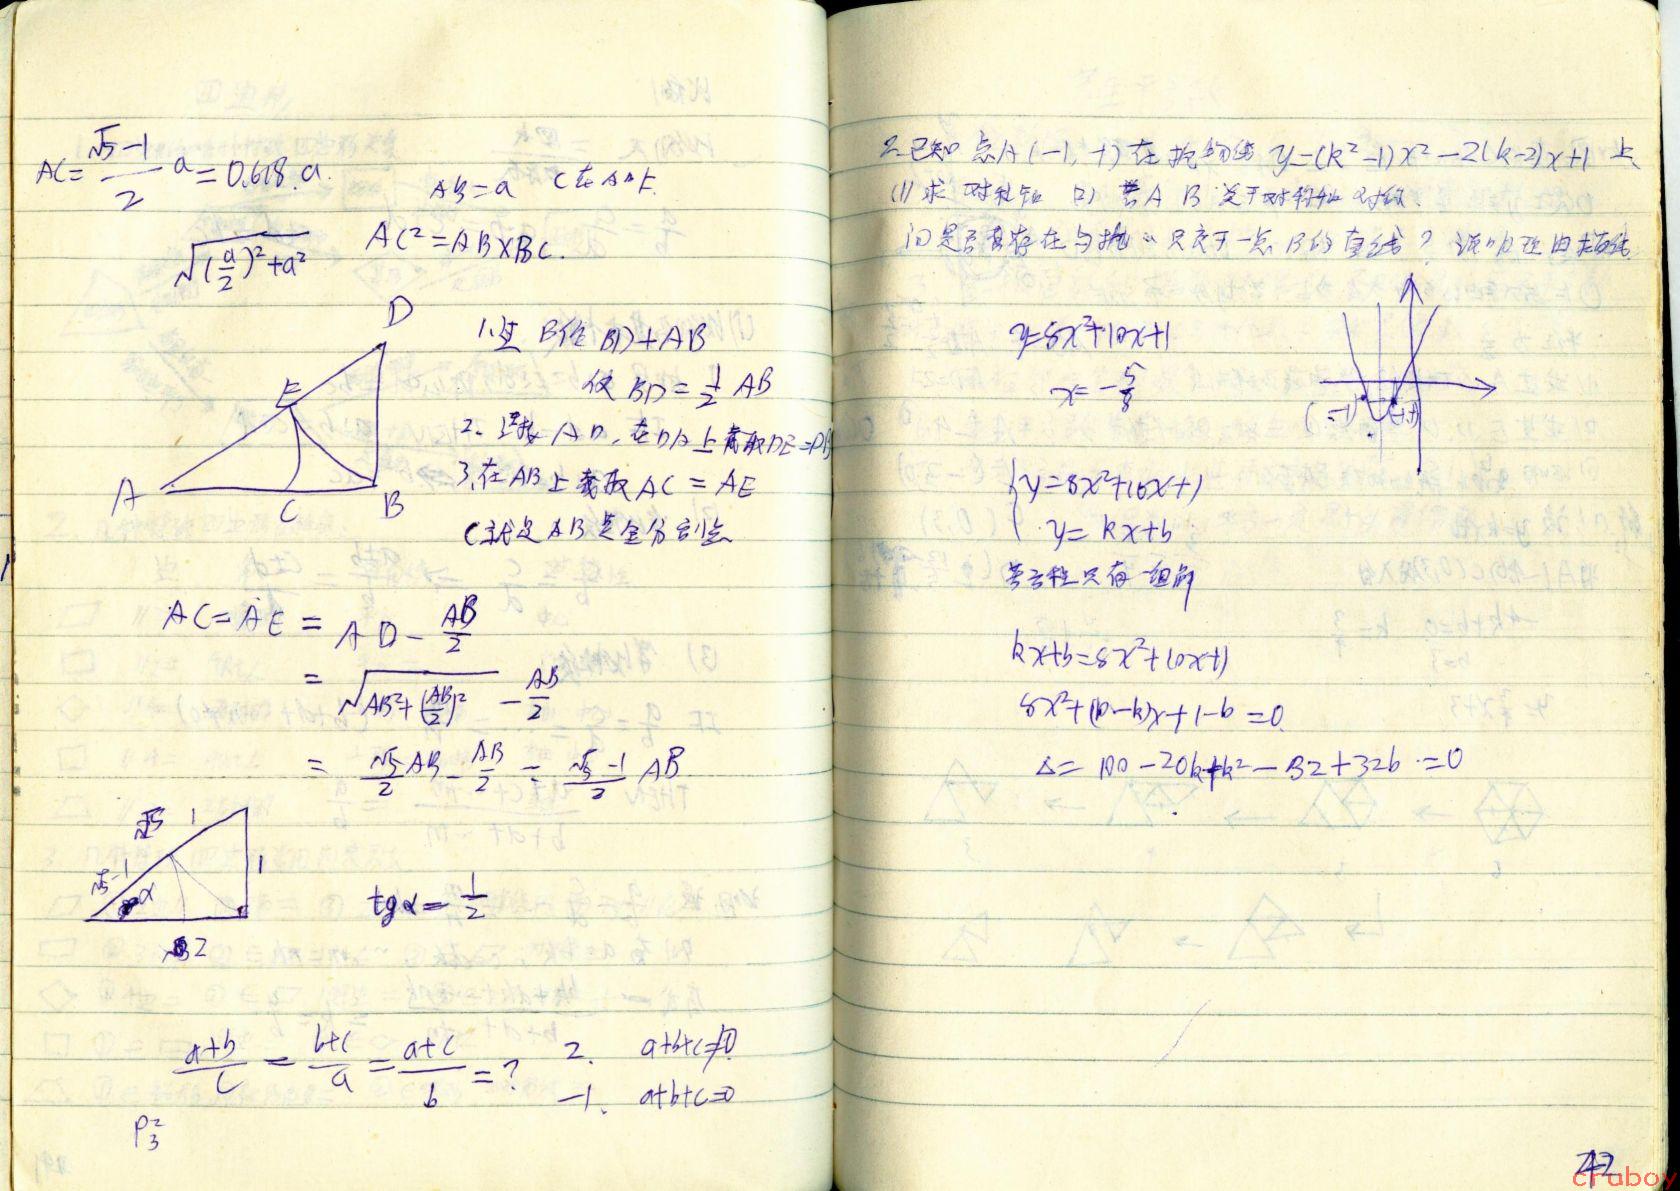 AC = (√5-1)/2 a = 0.618.a.
AB = a C在AB上.
√((a/2)²+a²)
AC² = AB×BC.
D
E
A
C
B
1.过B作BD⊥AB
使BD = 1/2 AB
2. 连接AD, 在DA上截取DE=DB
3.在AB上截取AC = AE
C就是AB是金分割点
AC = AE = AD - AB/2
= √(AB²+(AB/2)²) - AB/2
= √5/2 AB - AB/2 = (√5-1)/2 AB
√5 1
√5-1
α
1
2
tgα = 1/2
(a+b)/c = (b+c)/a = (a+c)/b = ?
2. a+b+c≠0
-1. a+b+c=0
P²₃
2.已知点A(-1,-1)在抛物线 y=(k²-1)x²-2(k-2)x+1 上
(1)求对称轴 (2) 若A B 关于对称轴对称
问是否存在与抛〃只交于一点B的直线?
y=8x²+10x+1
x = -5/8
(-1,-1)
{y=8x²+10x+1
y = kx+b
若方程只有一组解
kx+b=8x²+10x+1
8x²+(10-k)x+1-b=0.
Δ= 100-20k+k²-32+32b=0
42
craboy